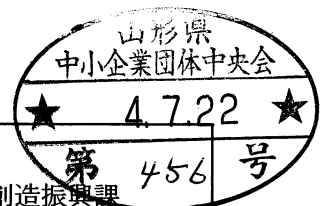 山形県
中小企業団体中央会
★ 4.7.22 ★
第 456 号
創造振興課